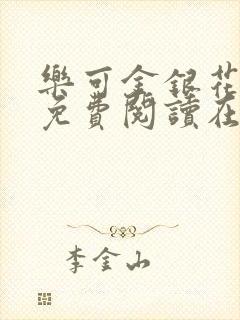 樂可金銀花
免費閱讀在
李金山